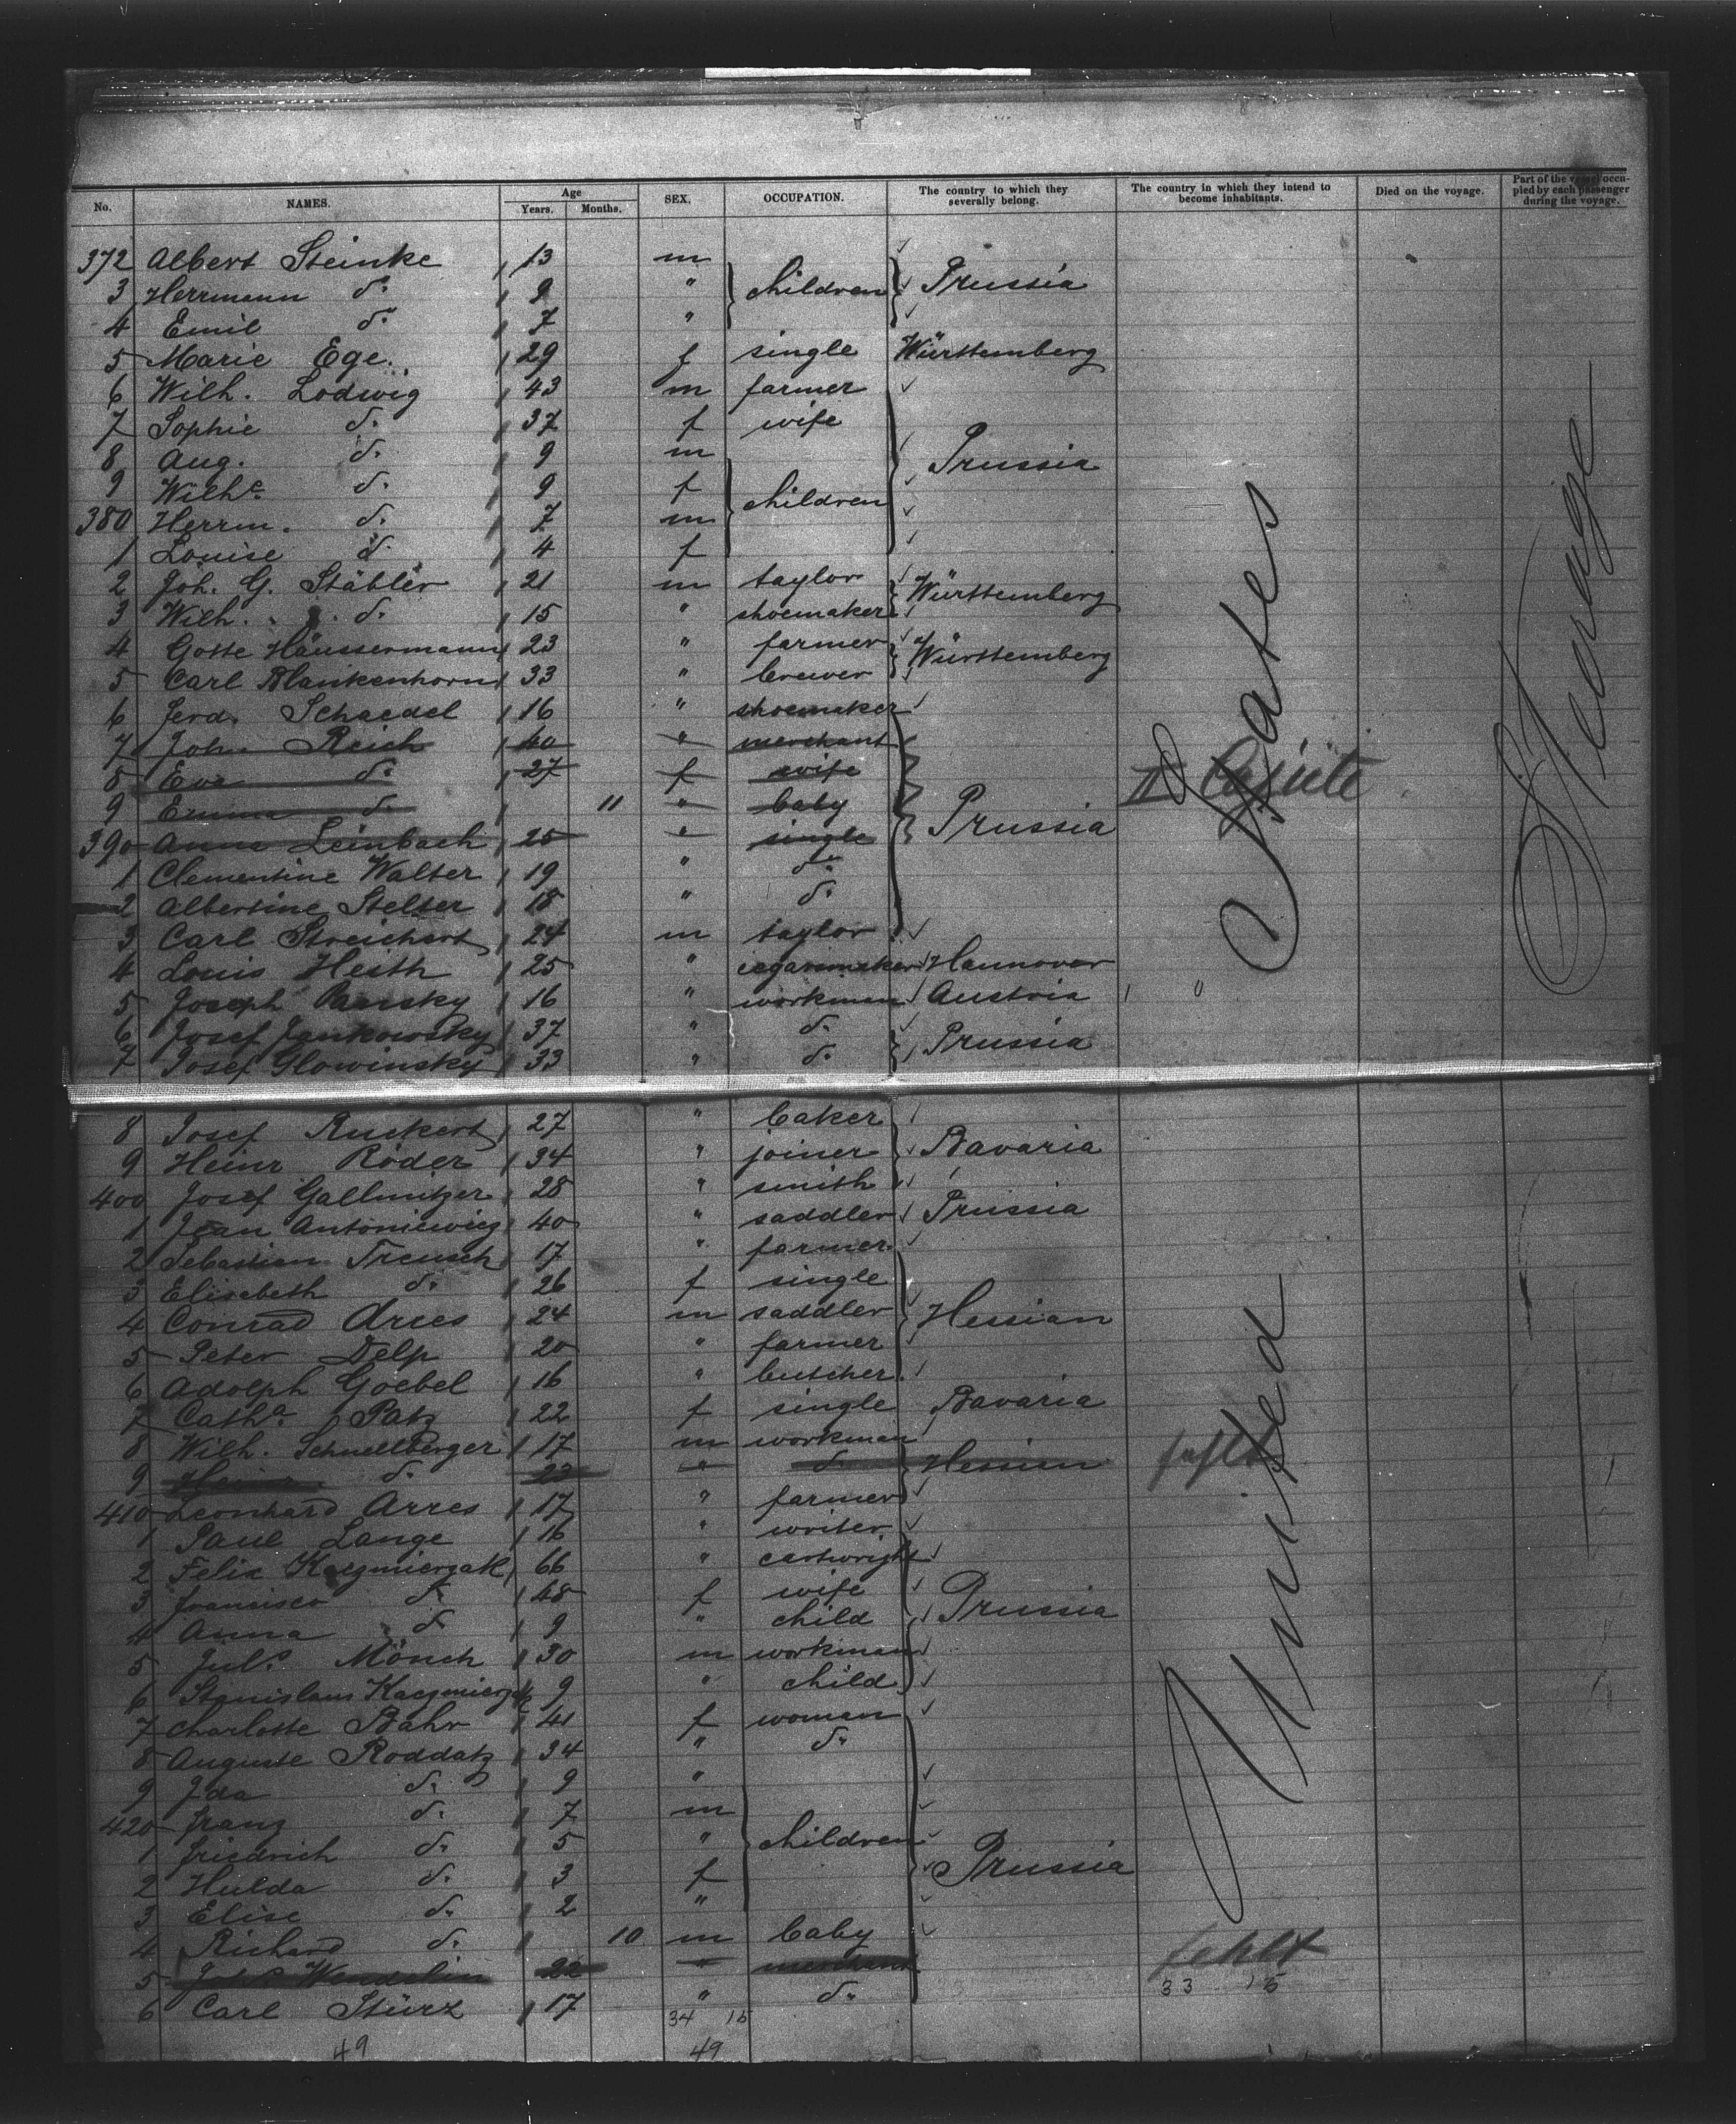 No. NAMES. Age Years. Months. SEX. OCCUPATION. The country to which they severally belong. The country in which they intend to become inhabitants. Died on the voyage. Part of the vessel occupied by each passenger during the voyage.
372 Albert Steinke 13 m
3 Herrmann do. 9 " children Prussia
4 Emil do. 7 "
5 Marie Ege. 29 f single Württemberg
6 Wilh. Lodwig 43 m farmer
7 Sophie do. 37 f wife
8 Aug. do. 9 m Prussia
9 Wilhe. do. 9 f children
380 Herrm. do. 7 m
1 Louise do. 4 f
2 Joh. G. Stäbler 21 m taylor Württemberg
3 Wilh. do. 15 " shoemaker
4 Gotte Häussermann 23 " farmer Württemberg
5 Carl Blankenhorn 33 " brewer
6 Ferd. Schaedel 16 " shoemaker
7 John Reich 40 " merchant
8 Eva do. 27 f wife II Cajüte
9 Emma do. 11 " baby Prussia
390 Anna Leinbach 25 " single
1 Clementine Walter 19 " do.
2 Albertine Stelter 18 " do.
3 Carl Streichert 24 m taylor
4 Louis Heith 25 " cegarmaker Hannover
5 Joseph 16 " workman Austria "
6 Josef Jankowsky 37 " do. Prussia
7 Josef Glowinsky 33 " do.
8 Josef Ruckert 27 " baker
9 Heinr Röder 34 " joiner Bavaria
400 Josef Gallmitzer 28 " smith
1 Jean Antoniewicz 40 " saddler Prussia
2 Sebastian Treusch 17 " farmer
3 Elisabeth do. 26 f single
4 Conrad Arres 24 m saddler Hessian
5 Peter Delp 20 " farmer
6 Adolph Goebel 16 " butcher
7 Catha. Patz 22 f single Bavaria
8 Wilh. Schnellberger 17 m workman
9 do. 23 " do. Hessian fehlt
410 Leonhard Arres 17 " farmer
1 Paul Lange 16 " writer
2 Felix Kaczmierzak 66 " cartwright
3 Francisca do. 48 f wife Prussia
4 Anna do. 9 " child
5 Juls. Mönch 30 m workman
6 Stanislaus Kaczmierzak 9 " child
7 Charlotte Bahr 41 f woman
8 Auguste Roddatz 34 " do.
9 Ida do. 9 "
420 Franz do. 7 m
1 Friedrich do. 5 " children
2 Hulda do. 3 f Prussia
3 Elise do. 2 "
4 Richard do. 10 m baby fehlt
5 Wendelin 22 " merchant 33 15
6 Carl Stürz 17 " do.
34 15
49 49
United States
Steerage